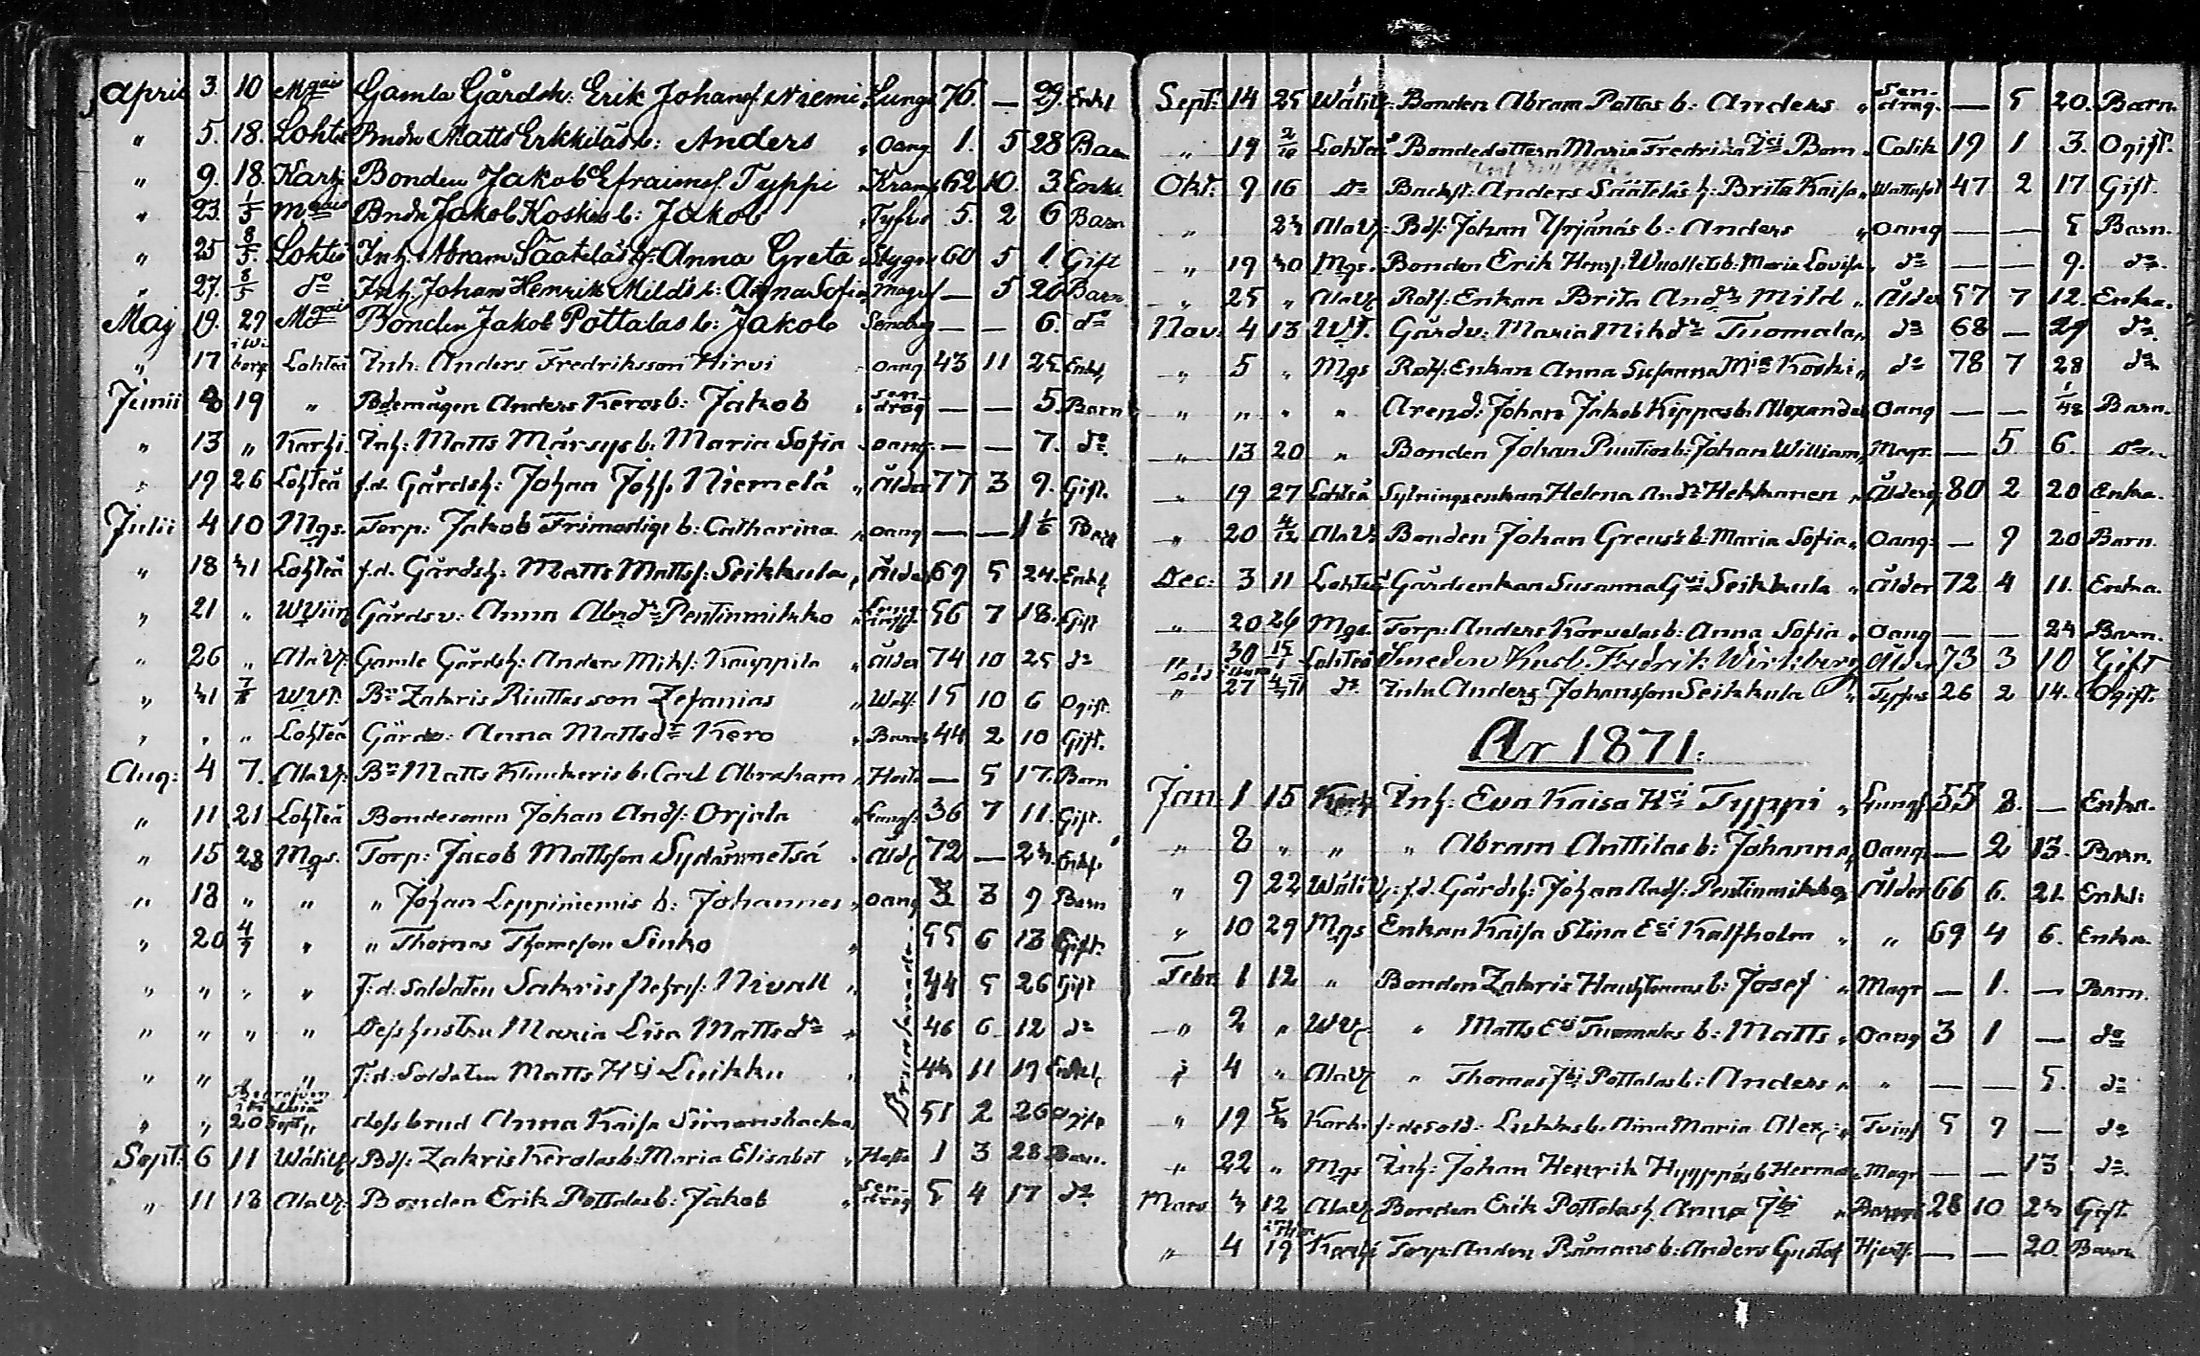 April 3. 10 Mgais Gamla Gårdsh: Erik Johansf Niemi Lungs 76. — 29. Enkl
" 5. 18. Lohteå Bndn Matts Erkkiläs b: Anders " Oang 1. 5 28 Barn
" 9. 18. Karhi Bonden Jakob Efraimsf. Typpi " Kramp 62 10. 3. Enkl.
" 23. 1/5 Mgais Bndn Jakob Koskis b: Jakob " Tyfus 5. 2 6 Barn
" 25 8/5. Lohteå Inh. Abram Sääteläs h: Anna Greta " Stygn 60 5 1. Gift
" 27. 8/5 do Inh. Johan Henrik Milds b: Anna Sofia " Magsf — 5 20 Barn
Maj 19. 29 Mgais Bonden Jakob Pottalas b: Jakob Söndrag — — 6. do
" 17 Lohteå Inh. Anders Fredriksson Hirvi " Oang 43 11 25 Enkl
Junii 8 19 " Bdemågen Anders Keros b: Jakob " Sendrag — — 5. Barn
" 13 " Karhi. Inh: Matts Märsys b: Maria Sofia " Oang. — — 7. do
" 19 26 Lohteå f.d. Gårdsh: Johan Johs. Niemelä " Ålder 77 3 9. Gift.
Julii 4 10 Mgs. Torp: Jakob Frimodigs b: Catharina " Oang — — 1 1/6 Barn
" 18 31 Lohteå f.d. Gårdsh: Matts Mattsf: Seikkula " Ålder 69 5 24. Enkl
" 21 " WViir Gårdsv: Anna Abrdr Pentinmikko " Lunginfl. 56 7 18. Gift
" 26 " AlaV. Gamle Gårdsh: Anders Mikf: Kauppila " Ålder 74 10 25 do
" 31 7/8 WVi. Br Zakris Riuttas son Zefanias " Watt: 15 10 6 Ogift.
" " " Lohteå Gårdsv: Anna Mattsdr Kero " Barns 44 2 10 Gift.
Aug: 4 7. AlaV: Br Matts Klemkeris b: Carl Abraham " Hosta — 5 17. Barn
" 11 21 Lohteå Bondesonen Johan Andf: Orjala " Lungs: 36 7 11. Gift.
" 15 28 Mgs. Torp: Jacob Mattsson Sydänmetsä " Åld. 72 — 23. Enkl.
" 18 " " " Johan Leppiniemis b: Johannes " Oang 3 3 9 Barn
" 20 4/9 " " Thomas Thomsson Sinko " 55 6 13 Gift.
" " " " F:d: Soldaten Sakris Nivall " 44 5 26 Gift
" " " " Dess hustru Maria Lisa Mattsdr " 46 6. 12 do
" " " " F:d: Soldaten Matts Hsi Luikku " 43 11 19 Enkl.
" " 20 Sept. dess brud Anna Kaisa Simonsbacka 51 2 26 Ogift
Sept: 6 11 WäliV. Bdf: Zakris Kerolas b: Maria Elisabet " Hosta 1 3 28 Barn.
" 11 18 AlaV: Bonden Erik Pottalas b: Jakob " Sendrag 5 4 17 do
Sept: 14 25 WäliV: Bonden Abram Pottas b: Anders " Sendrag. — 5 20. Barn.
" 19 2/10 Lohteå Bondedottern Maria Fredrika Jsi Born " Colik 19 1 3. Ogift.
Okt. 9 16 do Backst: Anders Säätelas h: Brita Kaisa " Wattusot 47 2 17 Gift.
" 23 AlaV: Bdf: Johan Yrjänäs b: Anders " Oang — — 5 Barn.
" 19 30 Mgs. Bonden Erik Hensf: Wuollets b: Maria Lovisa " do — — 9. do
" 25 " AlaV. Rotf: Enkan Brita Andr Mild " Ålder 57 7 12. Enka.
Nov: 4 13 WVi. Gårdv: Maria Mikdr Tuomala " do 68 — 29 do
" 5 " Mgs Rotf: Enkan Anna Susanna Mia Koski " do 78 7 28 do
" " " " Arend: Johan Jakob Kippas b: Alexander Oang — — 1/48 Barn.
" 13 20 " Bonden Johan Puutios b: Johan William " Magr. — 5 6. do
" 19 27 Lohteå Sytningsenkan Helena Andr Hekkanen " Ålderd. 80 2 20 Enka.
" 20 4/12 AlaV. Bonden Johan Greus's b: Maria Sofia " Oang: — 9 20 Barn.
Dec: 3 11 Lohteå Gårdsenkan Susanna Gsi Seikkula " Ålder 72 4 11. Enka.
" 20 26 Mgs. Torp: Anders Korvelas b: Anna Sofia " Oang — — 23 Barn.
" 30 15/1 Lohteå Smeden Fredrik Wirkberg Ålder 73 3 10 Gift
" 27 do Inh: Anders Johansson Seikkula " Tyfus 26 2 14. Ogift.
Ar 1871:
Jan 1 15 Karhi Inh: Eva Kaisa Ksi Typpi " Lungs. 55 8. — Enka.
" 8 " " " Abram Anttilas b: Johanna " Oang. — 2 13. Barn.
" 9 22 WäliV. f.d. Gårdsh: Johan Andf: Pentinmikko Ålder 66 6. 21. Enkl:
" 10 29 Mgs Enkan Kaisa Stina Esi Kalfholm " " 69 4 6. Enka.
Febr. 1 12 " Bonden Zakris Hauhtonens b: Josef " Magr — 1. — Barn.
" 2 " WV. " Matts Esi Tuomalas b: Matts " Oang 3 1 — do
" 4 " AlaV. " Thomas Jsi Pottalas b: Anders " " — — 5. do
" 19 5/3 Karhi f: de sold. Luikkus b: Aina Maria Alex: " Tvins 5 7 — do
" 22 " Mgs Inh: Johan Henrik Hyyppäs b Herman " Magr — — 13 do.
Mars 3 12 AlaV Bonden Erik Pottolas h. Anna Jsi " Barns 28 10 23 Gift.
" 4 19 Karhi Torp: Anders Råmans b: Anders Gustaf Hjertf. — — 20. Barn